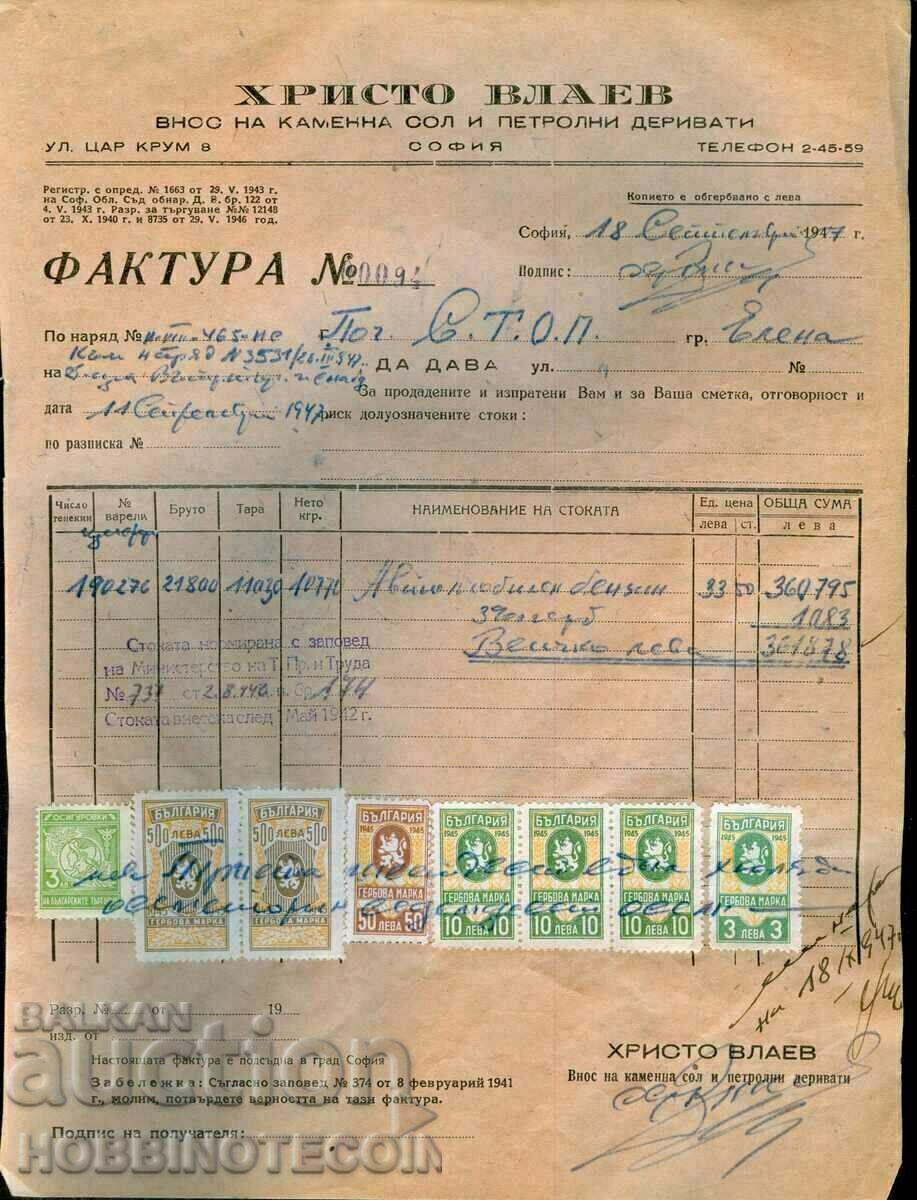 ХРИСТО ВЛАЕВ
ВНОС НА КАМЕННА СОЛ И ПЕТРОЛНИ ДЕРИВАТИ
УЛ. ЦАР КРУМ 8 СОФИЯ ТЕЛЕФОН 2-45-59
Регистр. с опред. № 1663 от 29. V. 1943 г.
на Соф. Обл. Съд обнар. Д. В. бр. 122 от
4. V. 1943 г. Разр. за търгуване №№ 12148
от 23. X. 1940 г. и 8735 от 29. V. 1946 год.
Копието е обгербвано с лева
София, 18 Септемврий 1947 г.
Подпис:
ФАКТУРА № 0094
По наряд № 465 Г Поч. С.Т.О.П. гр. Елена
Към наряд N 3531
на ДА ДАВА ул. №
За продадените и изпратени Вам и за Ваша сметка, отговорност и
дата 11 Септемврий 1947 риск долуозначените стоки:
по разписка №
Число тенекии № варели Бруто Тара Нето кгр. НАИМЕНОВАНИЕ НА СТОКАТА Ед. цена лева ст. ОБЩА СУМА лева
190276 21800 11030 10770 Автомобилен бензин 33 50 360795
1083
Всичко лева 361878
Стоката нормирана с заповед
на Министерство на Т. Пр. и Труда
№ 737 от 2.8.
Стоката внесена след Май 1942 г.
ОСИГУРОВКИ
3 ЛВ
НА БЪЛГАРСКИТЕ ТЪРГОВЦИ
БЪЛГАРИЯ
500 ЛЕВА 500
ГЕРБОВА МАРКА
БЪЛГАРИЯ
500 ЛЕВА 500
ГЕРБОВА МАРКА
БЪЛГАРИЯ
1945 1945
ГЕРБОВА МАРКА
50 ЛЕВА 50
БЪЛГАРИЯ
1945 1945
ГЕРБОВА МАРКА
10 ЛЕВА 10
БЪЛГАРИЯ
1945 1945
ГЕРБОВА МАРКА
10 ЛЕВА 10
БЪЛГАРИЯ
1945 1945
ГЕРБОВА МАРКА
10 ЛЕВА 10
БЪЛГАРИЯ
1945 1945
ГЕРБОВА МАРКА
3 ЛЕВА 3
на 18 IX 947
Разр. № от 19
изд. от
Настоящата фактура е подсъдна в град София
Забележка: Съгласно заповед № 374 от 8 февруарий 1941
г., молим, потвърдете верността на тази фактура.
Подпис на получателя:
ХРИСТО ВЛАЕВ
Внос на каменна сол и петролни деривати
BALKAN
auction
HOBBINOTECOIN